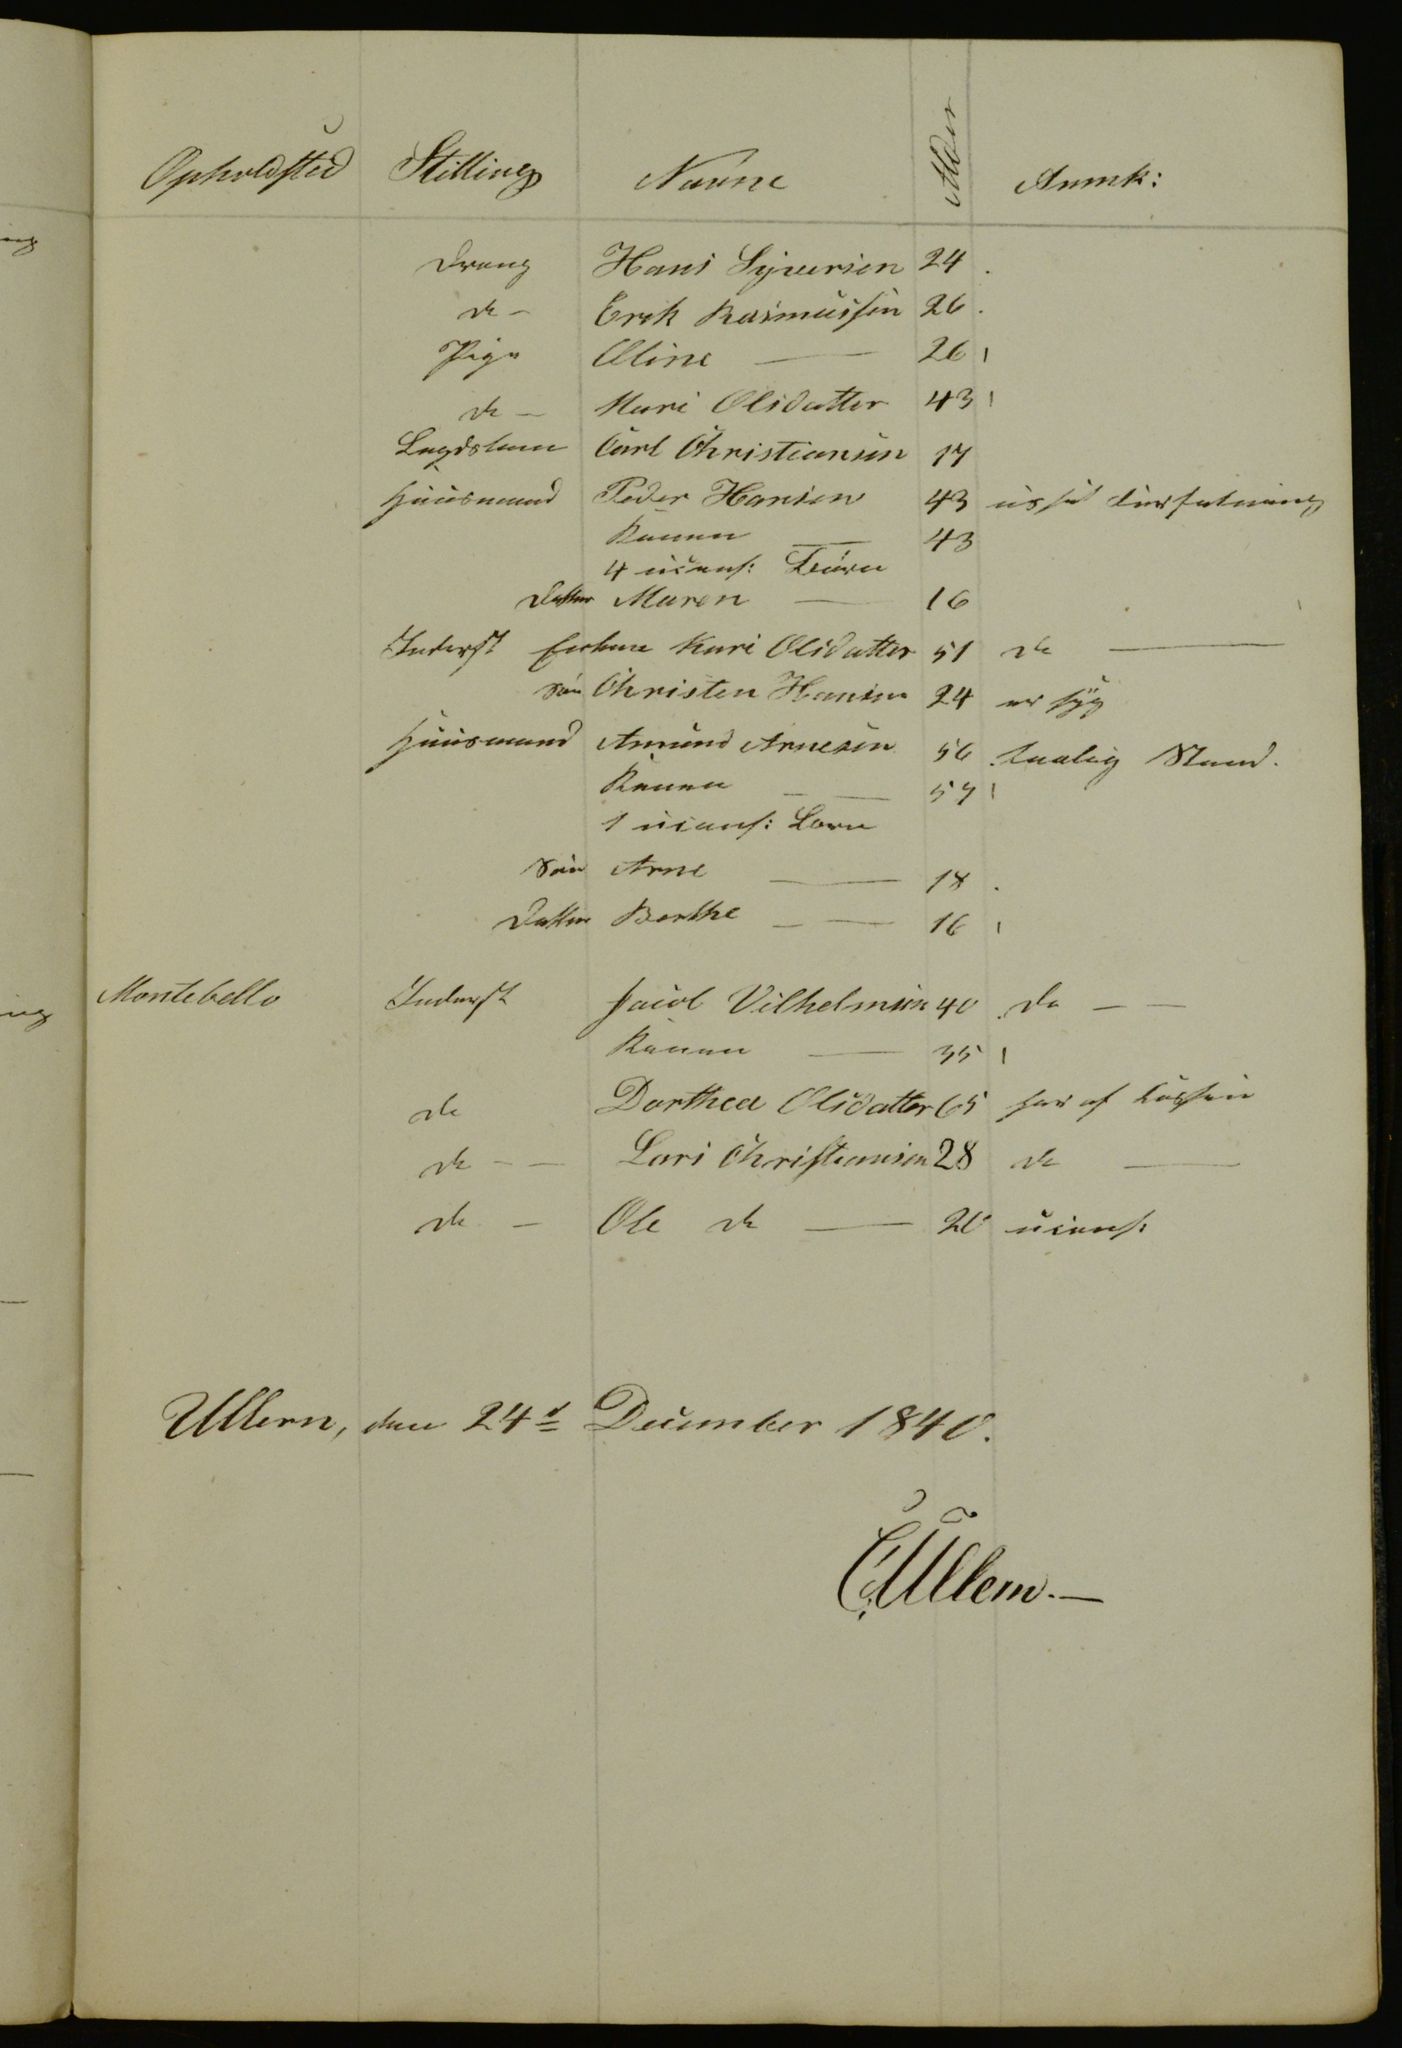 Opholdsted Stilling Navne Alder Anmk:
Dreng Hans Syversen 24.
do - Erik Rasmussen 26.
Pige Oline — 26
do - Kari Olsdatter 43
Lægdslem Carl Christiansen 17
Huusmand Peder Hansen 43 ussel Forfatning
Konen — 43
4 uconf: Børn
Datter Maren — 16
Inderst Enkene Kari Olsdatter 51 do —
Søn Christen Hansen 24 er syg
Huusmand Amund Arnesen 56 taalig Stand.
Konen — 57
1 uconf: Barn
Søn Arne — 18.
Datter Berthe — 16
Montebello Inderst Jacob Vilhelmsen 40 do —
Konen — 35
do Dorthea Olsdatter 65 har af Cassen
do - - Lars Christiansen 28 do —
do - Ole do — 20 uconf:
Ullern, den 24d December 1840.
C. Ullern.—